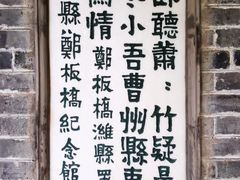 卧聽蕭：竹疑是
小吾曹州縣吏
關情 鄭板橋濰縣署
縣鄭板橋紀念館